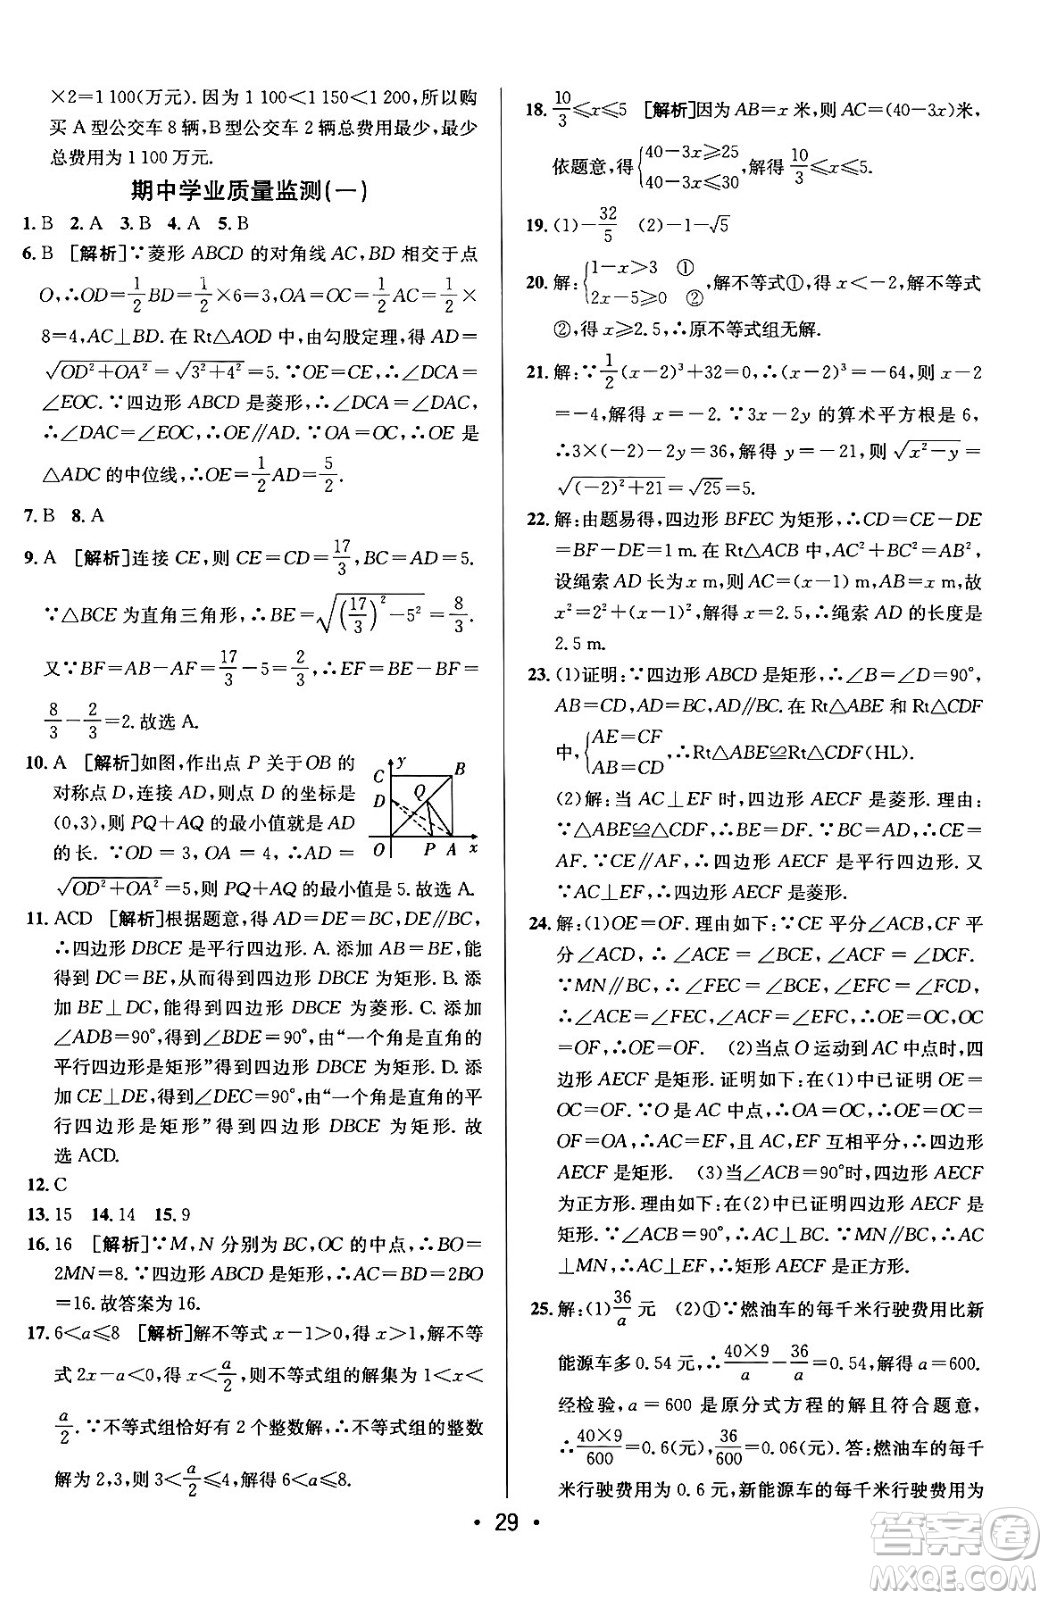 ×2=1 100(万元). 因为 1 100<1 150<1 200, 所以购
买 A 型公交车 8 辆, B 型公交车 2 辆总费用最少, 最少
总费用为 1 100 万元.
期中学业质量监测(一)
1. B 2. A 3. B 4. A 5. B
6. B [解析]∵菱形 ABCD 的对角线 AC, BD 相交于点
O, ∴OD=1/2BD=1/2×6=3, OA=OC=1/2AC=1/2×
8=4, AC⊥BD. 在 Rt△AOD 中, 由勾股定理, 得 AD=
√(OD²+OA²)=√(3²+4²)=5. ∵OE=CE, ∴∠DCA=
∠EOC. ∵四边形 ABCD 是菱形, ∴∠DCA=∠DAC,
∴∠DAC=∠EOC, ∴OE∥AD. ∵OA=OC, ∴OE 是
△ADC 的中位线, ∴OE=1/2AD=5/2.
7. B 8. A
9. A [解析]连接 CE, 则 CE=CD=17/3, BC=AD=5.
∵△BCE 为直角三角形, ∴BE=√((17/3)²-5²)=8/3.
又∵BF=AB-AF=17/3-5=2/3, ∴EF=BE-BF=
8/3-2/3=2. 故选 A.
10. A [解析]如图, 作出点 P 关于OB 的
对称点 D, 连接 AD, 则点 D 的坐标是
(0,3), 则 PQ+AQ 的最小值就是 AD
的长. ∵OD=3, OA=4, ∴AD=
√(OD²+OA²)=5, 则 PQ+AQ 的最小值是 5. 故选 A.
y
C B
D Q
O P A x
11. ACD [解析]根据题意, 得 AD=DE=BC, DE∥BC,
∴四边形 DBCE 是平行四边形. A. 添加 AB=BE, 能
得到 DC=BE, 从而得到四边形 DBCE 为矩形. B. 添
加 BE⊥DC, 能得到四边形 DBCE 为菱形. C. 添加
∠ADB=90°, 得到∠BDE=90°, 由“一个角是直角的
平行四边形是矩形”得到四边形 DBCE 是矩形. D. 添
加 CE⊥DE, 得到∠DEC=90°, 由“一个角是直角的平
行四边形是矩形”得到四边形 DBCE 是矩形. 故
选 ACD.
12. C
13. 15 14. 14 15. 9
16. 16 [解析]∵M, N 分别为 BC, OC 的中点, ∴BO=
2MN=8. ∵四边形 ABCD 是矩形, ∴AC=BD=2BO
=16. 故答案为 16.
17. 6<a≤8 [解析]解不等式 x-1>0, 得 x>1, 解不等
式 2x-a<0, 得 x<a/2, 则不等式组的解集为 1<x<
a/2. ∵不等式组恰好有 2 个整数解, ∴不等式组的整数
解为 2, 3, 则 3<a/2≤4, 解得 6<a≤8.
18. 10/3≤x≤5 [解析]因为 AB=x 米, 则 AC=(40-3x)米,
依题意, 得{40-3x≥25 40-3x≤30, 解得 10/3≤x≤5.
19. (1)-32/5 (2)-1-√5
20. 解: {1-x>3 ① 2x-5≥0 ②, 解不等式①, 得 x<-2, 解不等式
②, 得 x≥2.5, ∴原不等式组无解.
21. 解: ∵1/2(x-2)³+32=0, ∴(x-2)³=-64, 则 x-2
=-4, 解得 x=-2. ∵3x-2y 的算术平方根是 6,
∴3×(-2)-2y=36, 解得 y=-21, 则 √(x²-y)=
√((-2)²+21)=√25=5.
22. 解: 由题易得, 四边形 BFEC 为矩形, ∴CD=CE-DE
=BF-DE=1 m. 在 Rt△ACB 中, AC²+BC²=AB²,
设绳索 AD 长为 x m, 则 AC=(x-1)m, AB=x m, 故
x²=2²+(x-1)², 解得 x=2.5, ∴绳索 AD 的长度是
2.5 m.
23. (1)证明: ∵四边形 ABCD 是矩形, ∴∠B=∠D=90°,
AB=CD, AD=BC, AD∥BC. 在 Rt△ABE 和Rt△CDF
中, {AE=CF AB=CD, ∴Rt△ABE≌Rt△CDF(HL).
(2)解: 当 AC⊥EF 时, 四边形 AECF 是菱形. 理由:
∵△ABE≌△CDF, ∴BE=DF. ∵BC=AD, ∴CE=
AF. ∵CE∥AF, ∴四边形 AECF 是平行四边形. 又
∵AC⊥EF, ∴四边形 AECF 是菱形.
24. 解: (1)OE=OF. 理由如下: ∵CE 平分∠ACB, CF 平
分∠ACD, ∴∠ACE=∠BCE, ∠ACF=∠DCF.
∵MN∥BC, ∴∠FEC=∠BCE, ∠EFC=∠DCF,
∴∠ACE=∠FEC, ∠ACF=∠EFC, ∴OE=OC, OC
=OF, ∴OE=OF. (2)当点 O 运动到 AC 中点时, 四边
形 AECF 是矩形. 证明如下: 由(1)证明可得 OE=
OC=OF. ∵O 是 AC 中点, ∴OA=OC, ∴OE=OC=
OF=OA, ∴AC=EF, 且 AC, EF 互相平分, ∴四边形
AECF 是矩形. (3)当∠ACB=90°时, 四边形 AECF
为正方形. 理由如下: 在(2)中已证明四边形 AECF 是
矩形. ∵∠ACB=90°, ∴AC⊥BC. ∵MN∥BC, ∴AC
⊥MN, ∴AC⊥EF, ∴矩形 AECF 是正方形.
25. 解: (1)36/a 元 (2)①∵燃油车的每千米行驶费用比新
能源车多 0.54 元, ∴40×9/a-36/a=0.54, 解得 a=600.
经检验, a=600 是原分式方程的解且符合题意,
∴40×9/600=0.6(元), 36/600=0.06(元). 答: 燃油车的每千
米行驶费用为 0.6 元, 新能源车的每千米行驶费用为
• 29 •
答案圈
MXQE.COM